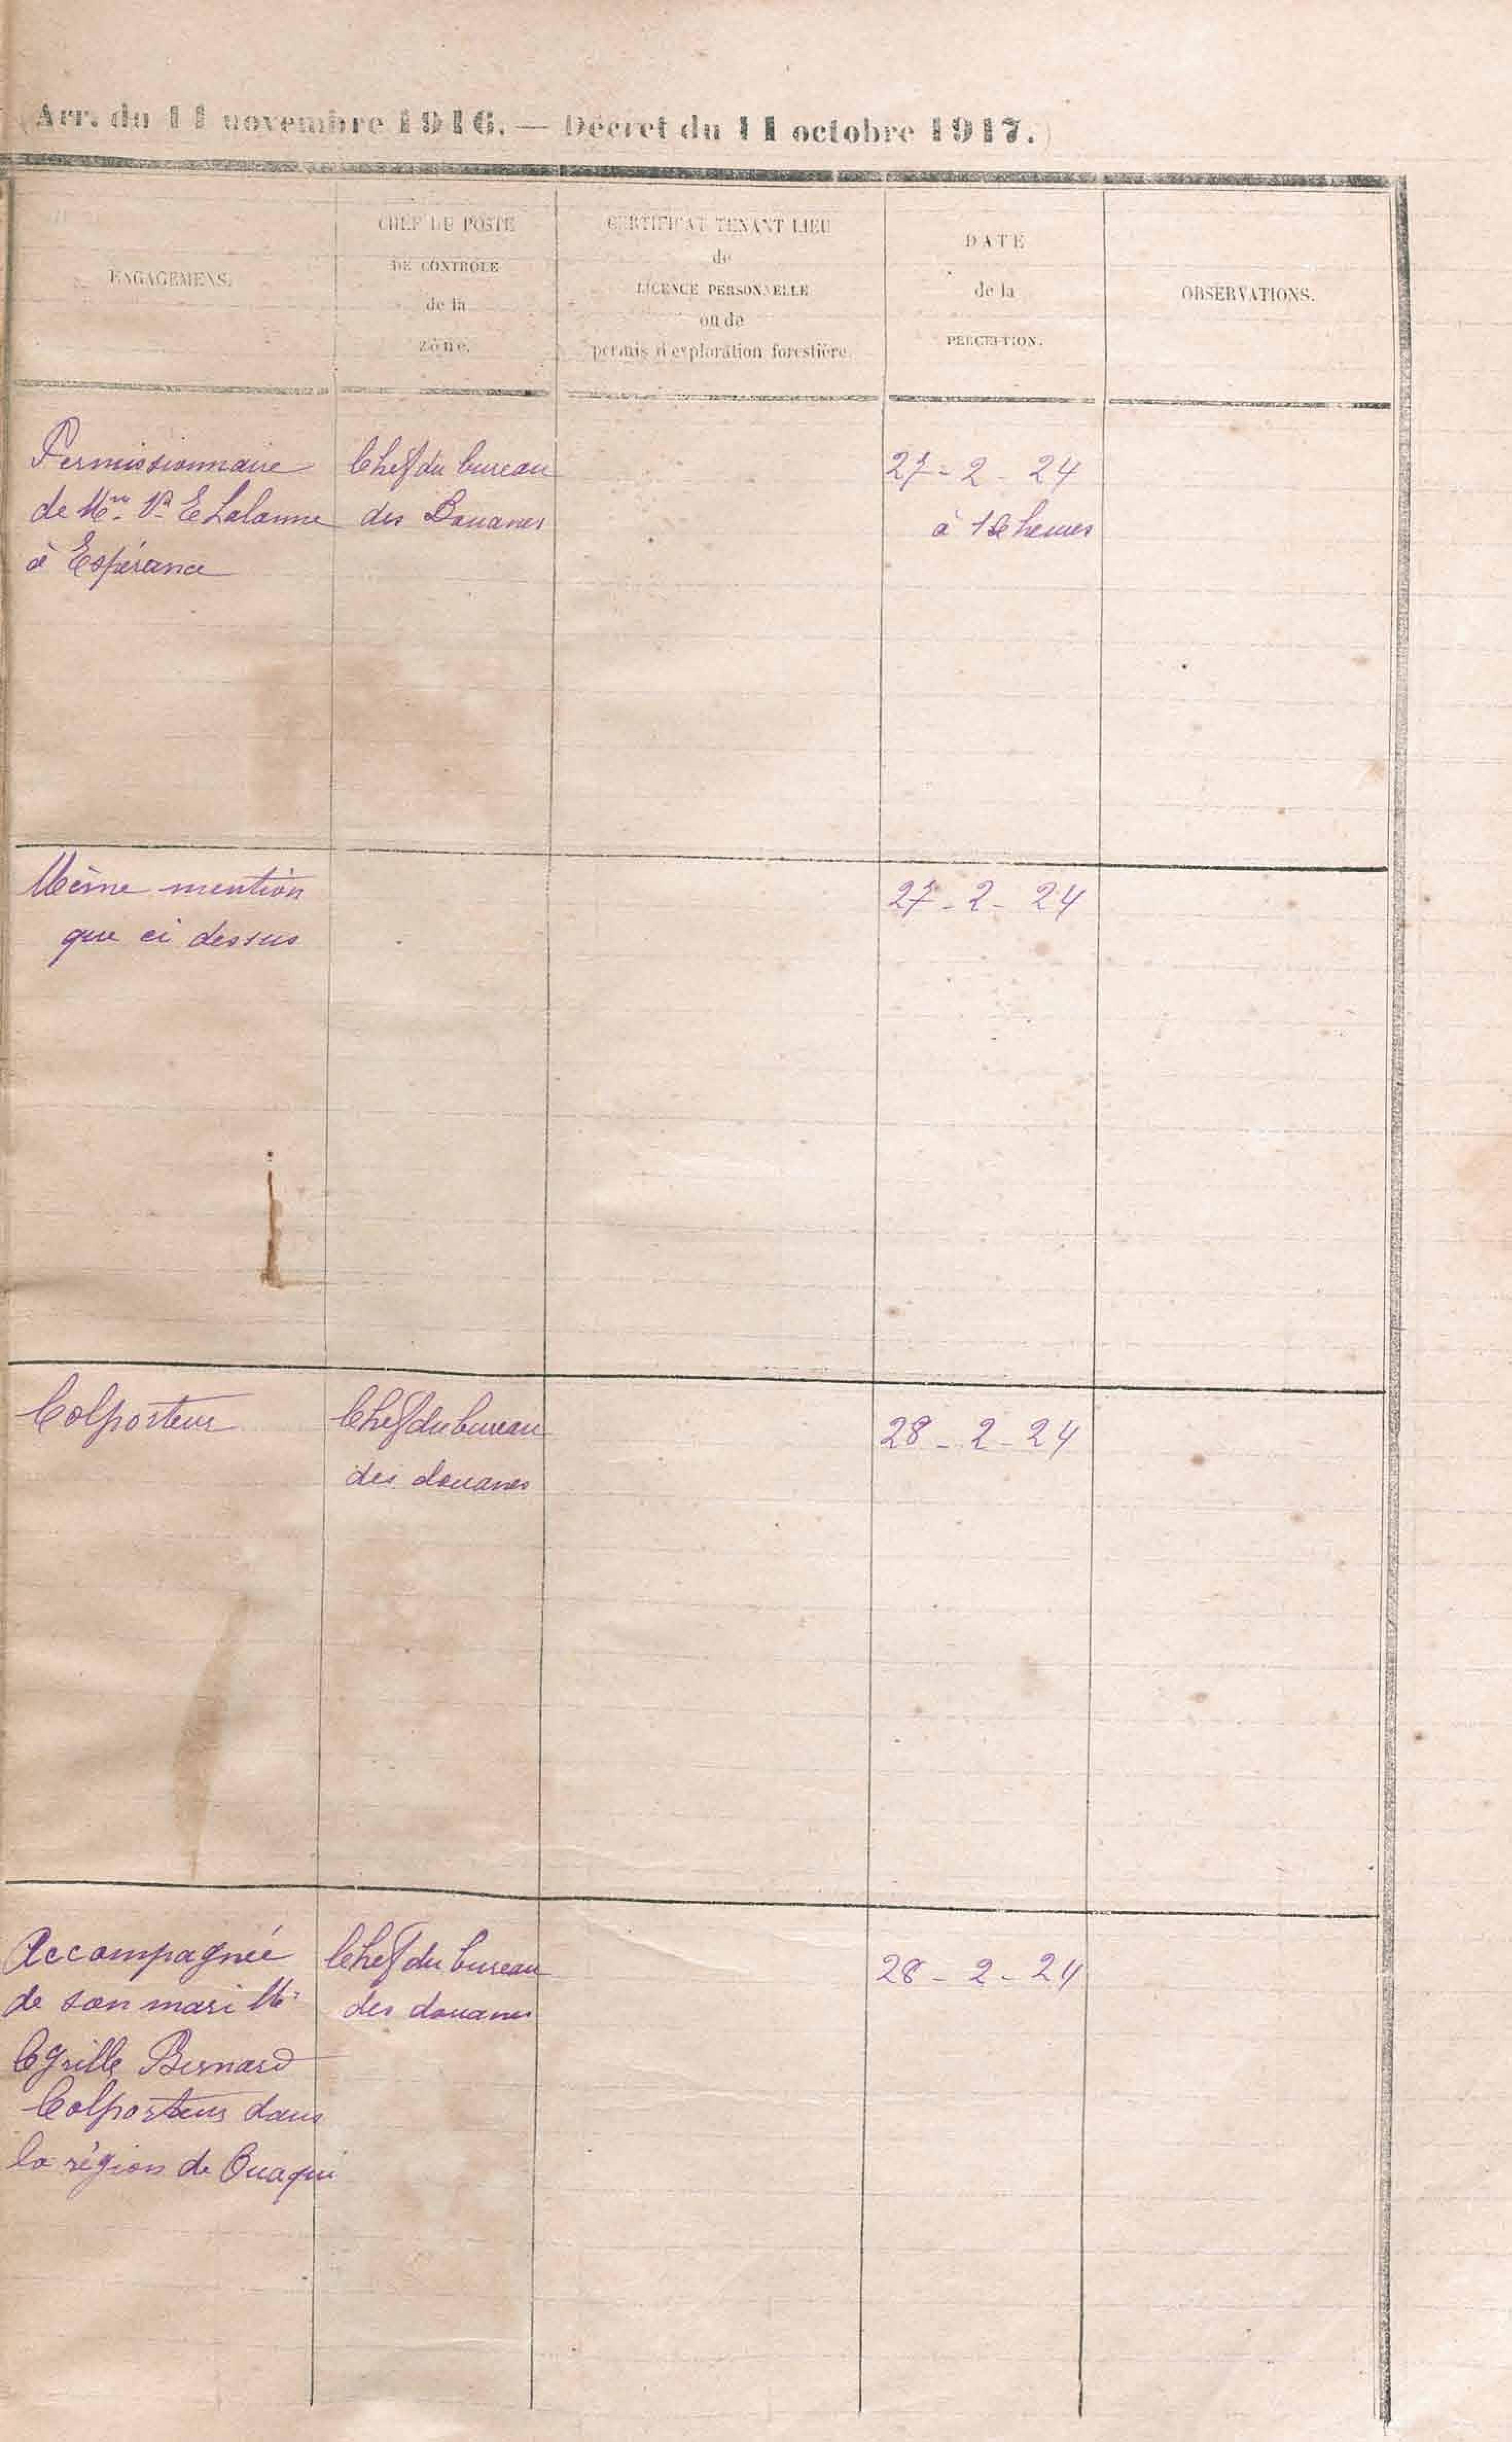 (Arr. du 11 novembre 1916. — Décret du 11 octobre 1917.)
ENGAGEMENS.
CHEF DE POSTE
DE CONTROLE
de la
zône.
CERTIFICAT TENANT LIEU
de
LICENCE PERSONNELLE
ou de
permis d'exploration forestière.
DATE
de la
PERCEPTION.
OBSERVATIONS.
Permissionnaire
de Mme Ve E Lalanne
à Espérance
Chef du bureau
des Douanes
27 - 2 - 24
à heures
Même mention
que ci dessus
27 - 2 - 24
Colporteur
Chef du bureau
des douanes
28 - 2 - 24
Accompagnée
de son mari Mr
Cyrille Bernard
Colporteur dans
la région de Ouaqui
Chef du bureau
des douanes
28 - 2 - 24